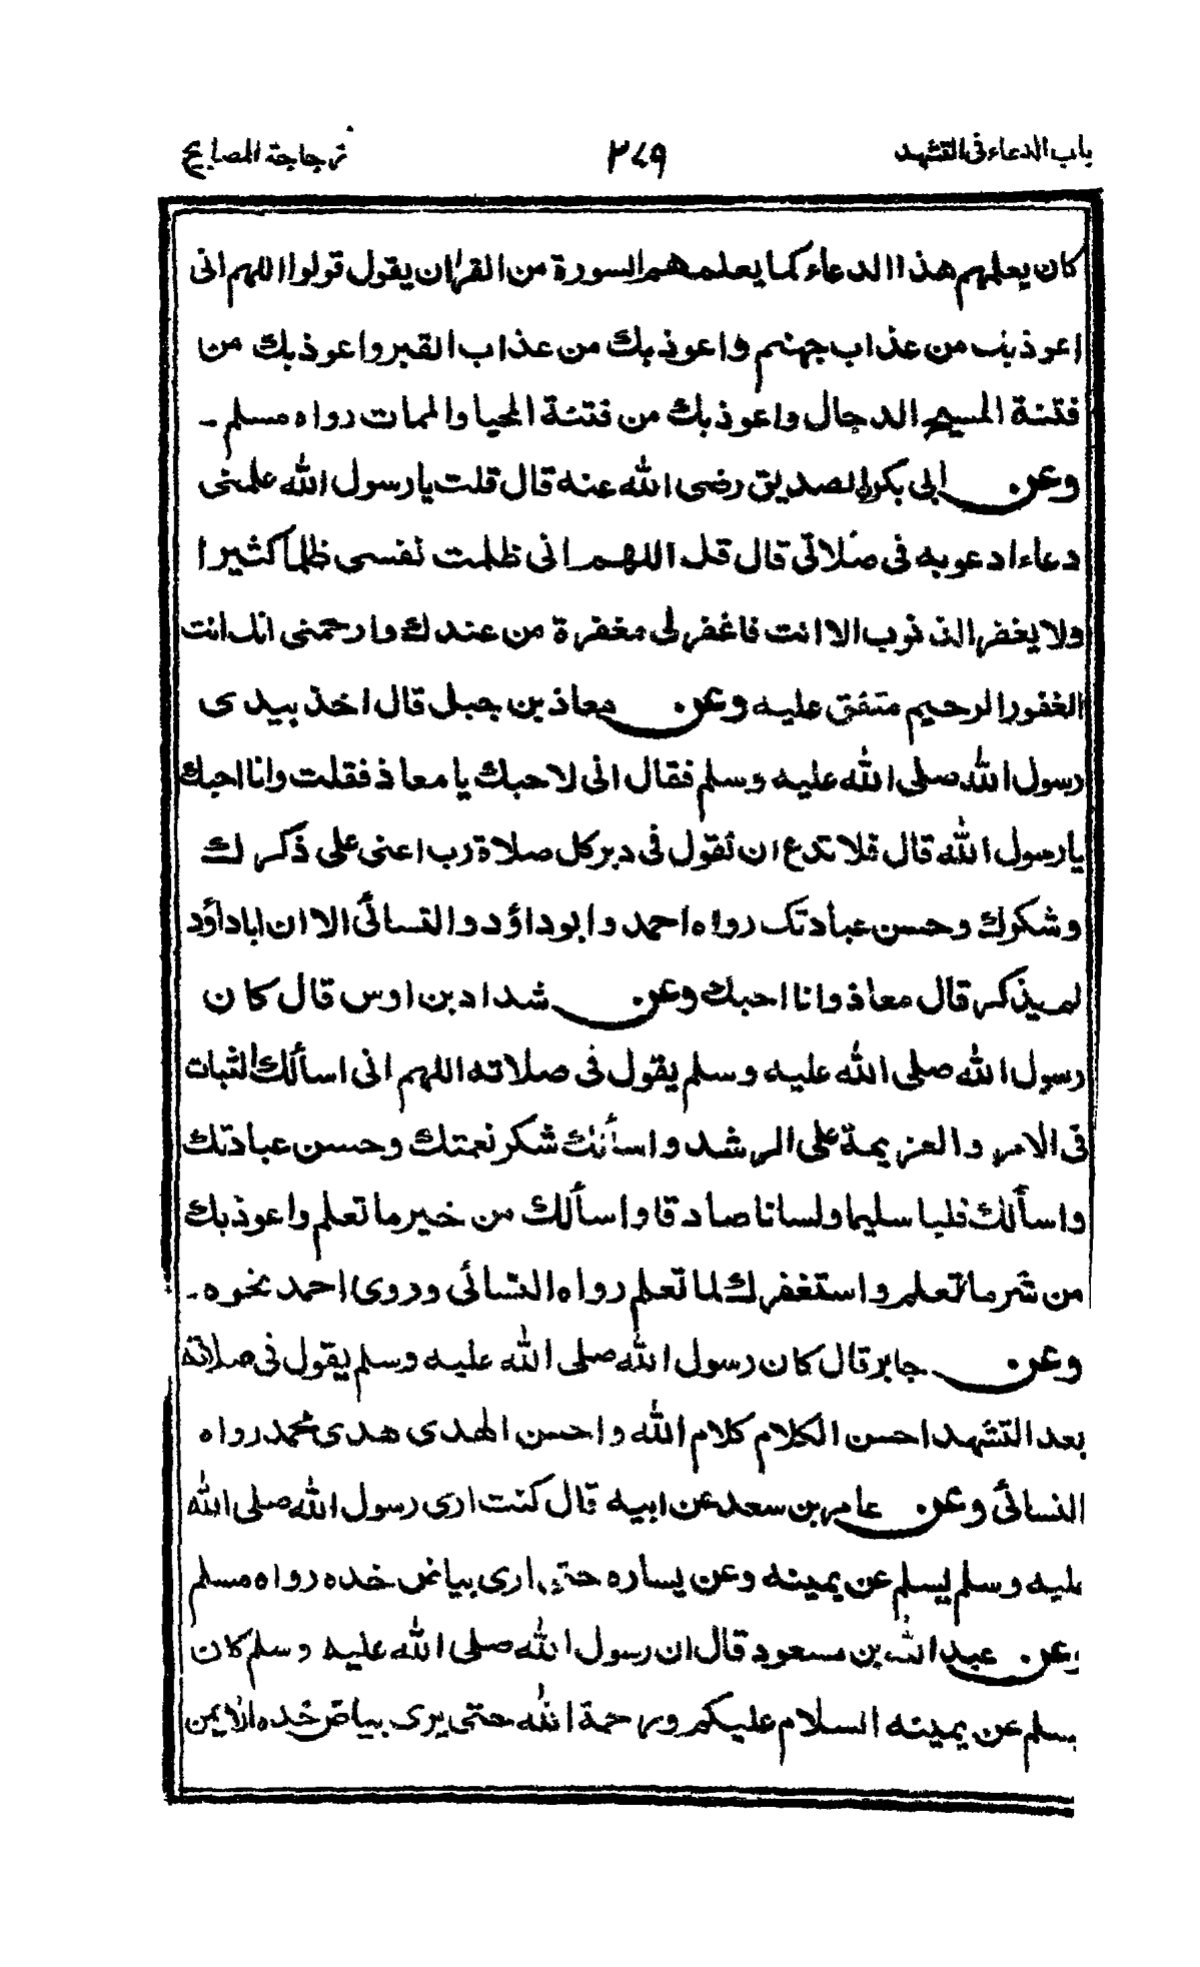 باب الدعاء فى التشهد ٢٧٩ زجاجة المصابيح
كان يعلمهم هذا الدعاء كما يعلمهم السورة من القرآن يقول قولوا اللهم انى
اعوذبك من عذاب جهنم واعوذبك من عذاب القبر واعوذبك من
فتنة المسيح الدجال واعوذبك من فتنة المحيا والممات رواه مسلم -
وعن ابى بكر الصديق رضى الله عنه قال قلت يا رسول الله علمنى
دعاء ادعو به فى صلاتى قال قل اللهم انى ظلمت نفسى ظلما كثيرا
ولا يغفر الذنوب الا انت فاغفر لى مغفرة من عندك وارحمنى انك انت
الغفور الرحيم متفق عليه وعن معاذ بن جبل قال اخذ بيدى
رسول الله صلى الله عليه وسلم فقال انى لاحبك يا معاذ فقلت وانا احبك
يا رسول الله قال فلا تدع ان تقول فى دبر كل صلاة رب اعنى على ذكرك
وشكرك وحسن عبادتك رواه احمد وابو داؤد والنسائى الا ان ابا داؤد
لم يذكر قال معاذ وانا احبك وعن شداد بن اوس قال كان
رسول الله صلى الله عليه وسلم يقول فى صلاته اللهم انى اسألك الثبات
فى الامر والعزيمة على الرشد واسألك شكر نعمتك وحسن عبادتك
واسألك قلبا سليما ولسانا صادقا واسألك من خير ما تعلم واعوذبك
من شر ما تعلم واستغفرك لما تعلم رواه النسائى وروى احمد نحوه -
وعن جابر قال كان رسول الله صلى الله عليه وسلم يقول فى صلاته
بعد التشهد احسن الكلام كلام الله واحسن الهدى هدى محمد رواه
النسائى وعن عامر بن سعد عن ابيه قال كنت ارى رسول الله صلى الله
عليه وسلم يسلم عن يمينه وعن يساره حتى ارى بياض خده رواه مسلم
وعن عبد الله بن مسعود قال ان رسول الله صلى الله عليه وسلم كان
يسلم عن يمينه السلام عليكم ورحمة الله حتى يرى بياض خده الايمن